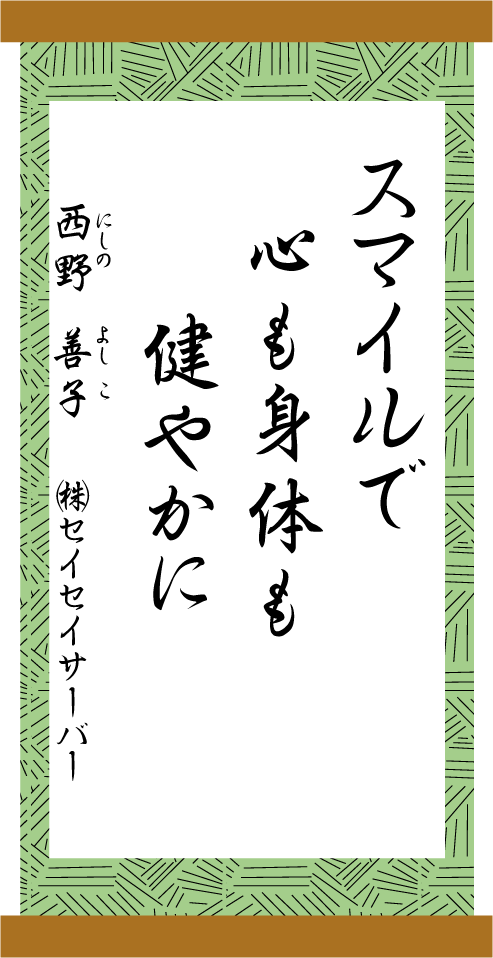 スマイルで
心も身体も
健やかに
西野 善子 ㈱セイセイサーバー
にしの よしこ